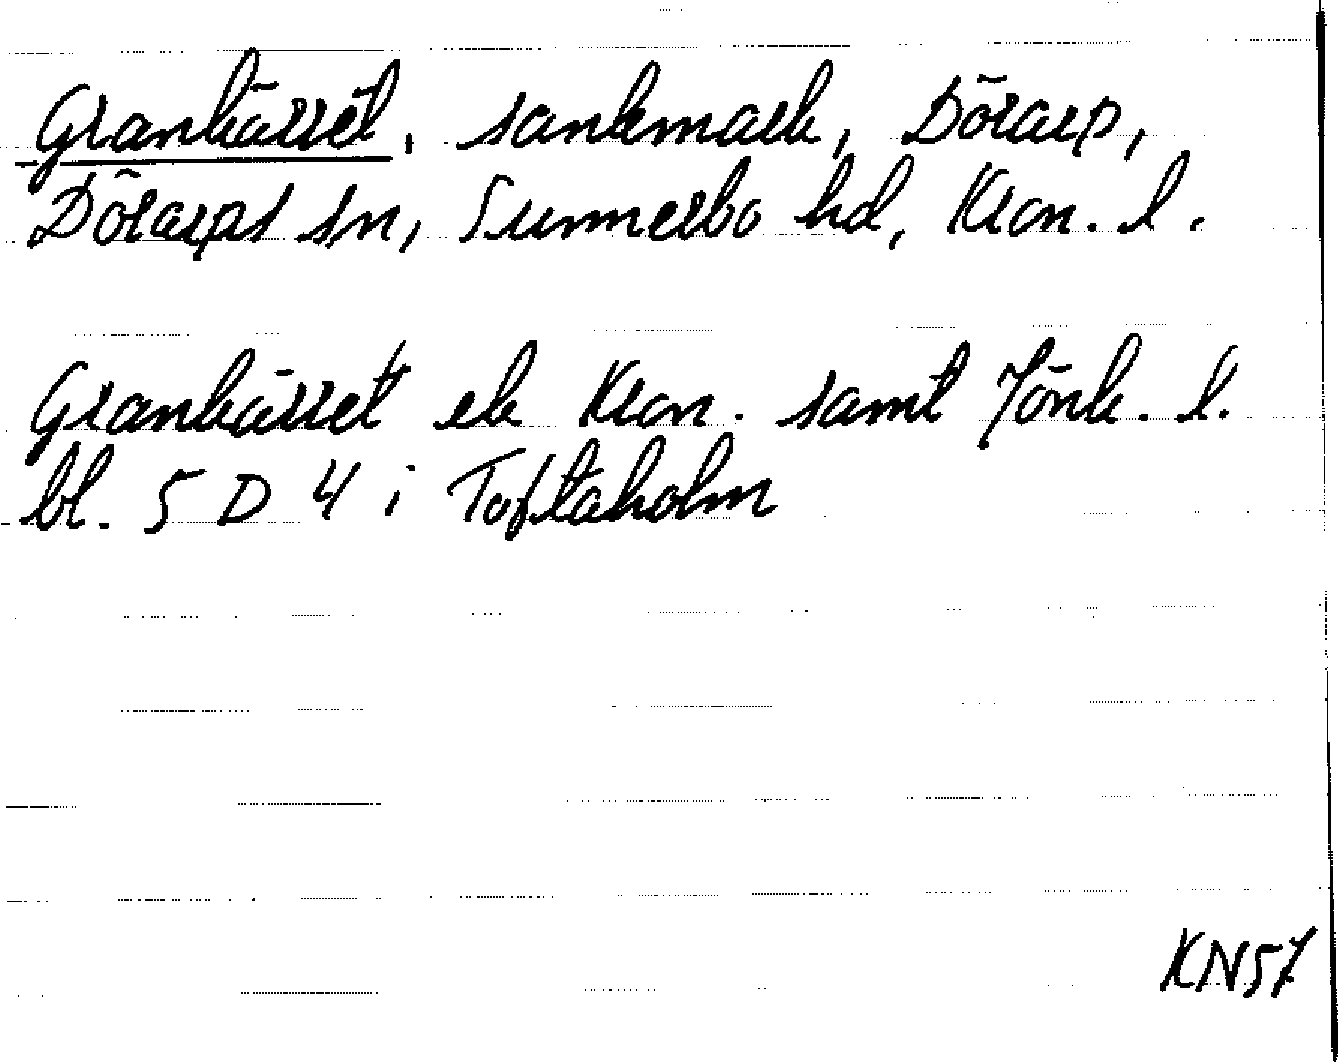 Grankärret, sankmark, Dörarp,
Dörarps sn, Sunnerbo hd, Kron. l.
Grankärret ek Kron. samt Jönk. l.
bl. 5 D 4 i Toftaholm
KN57